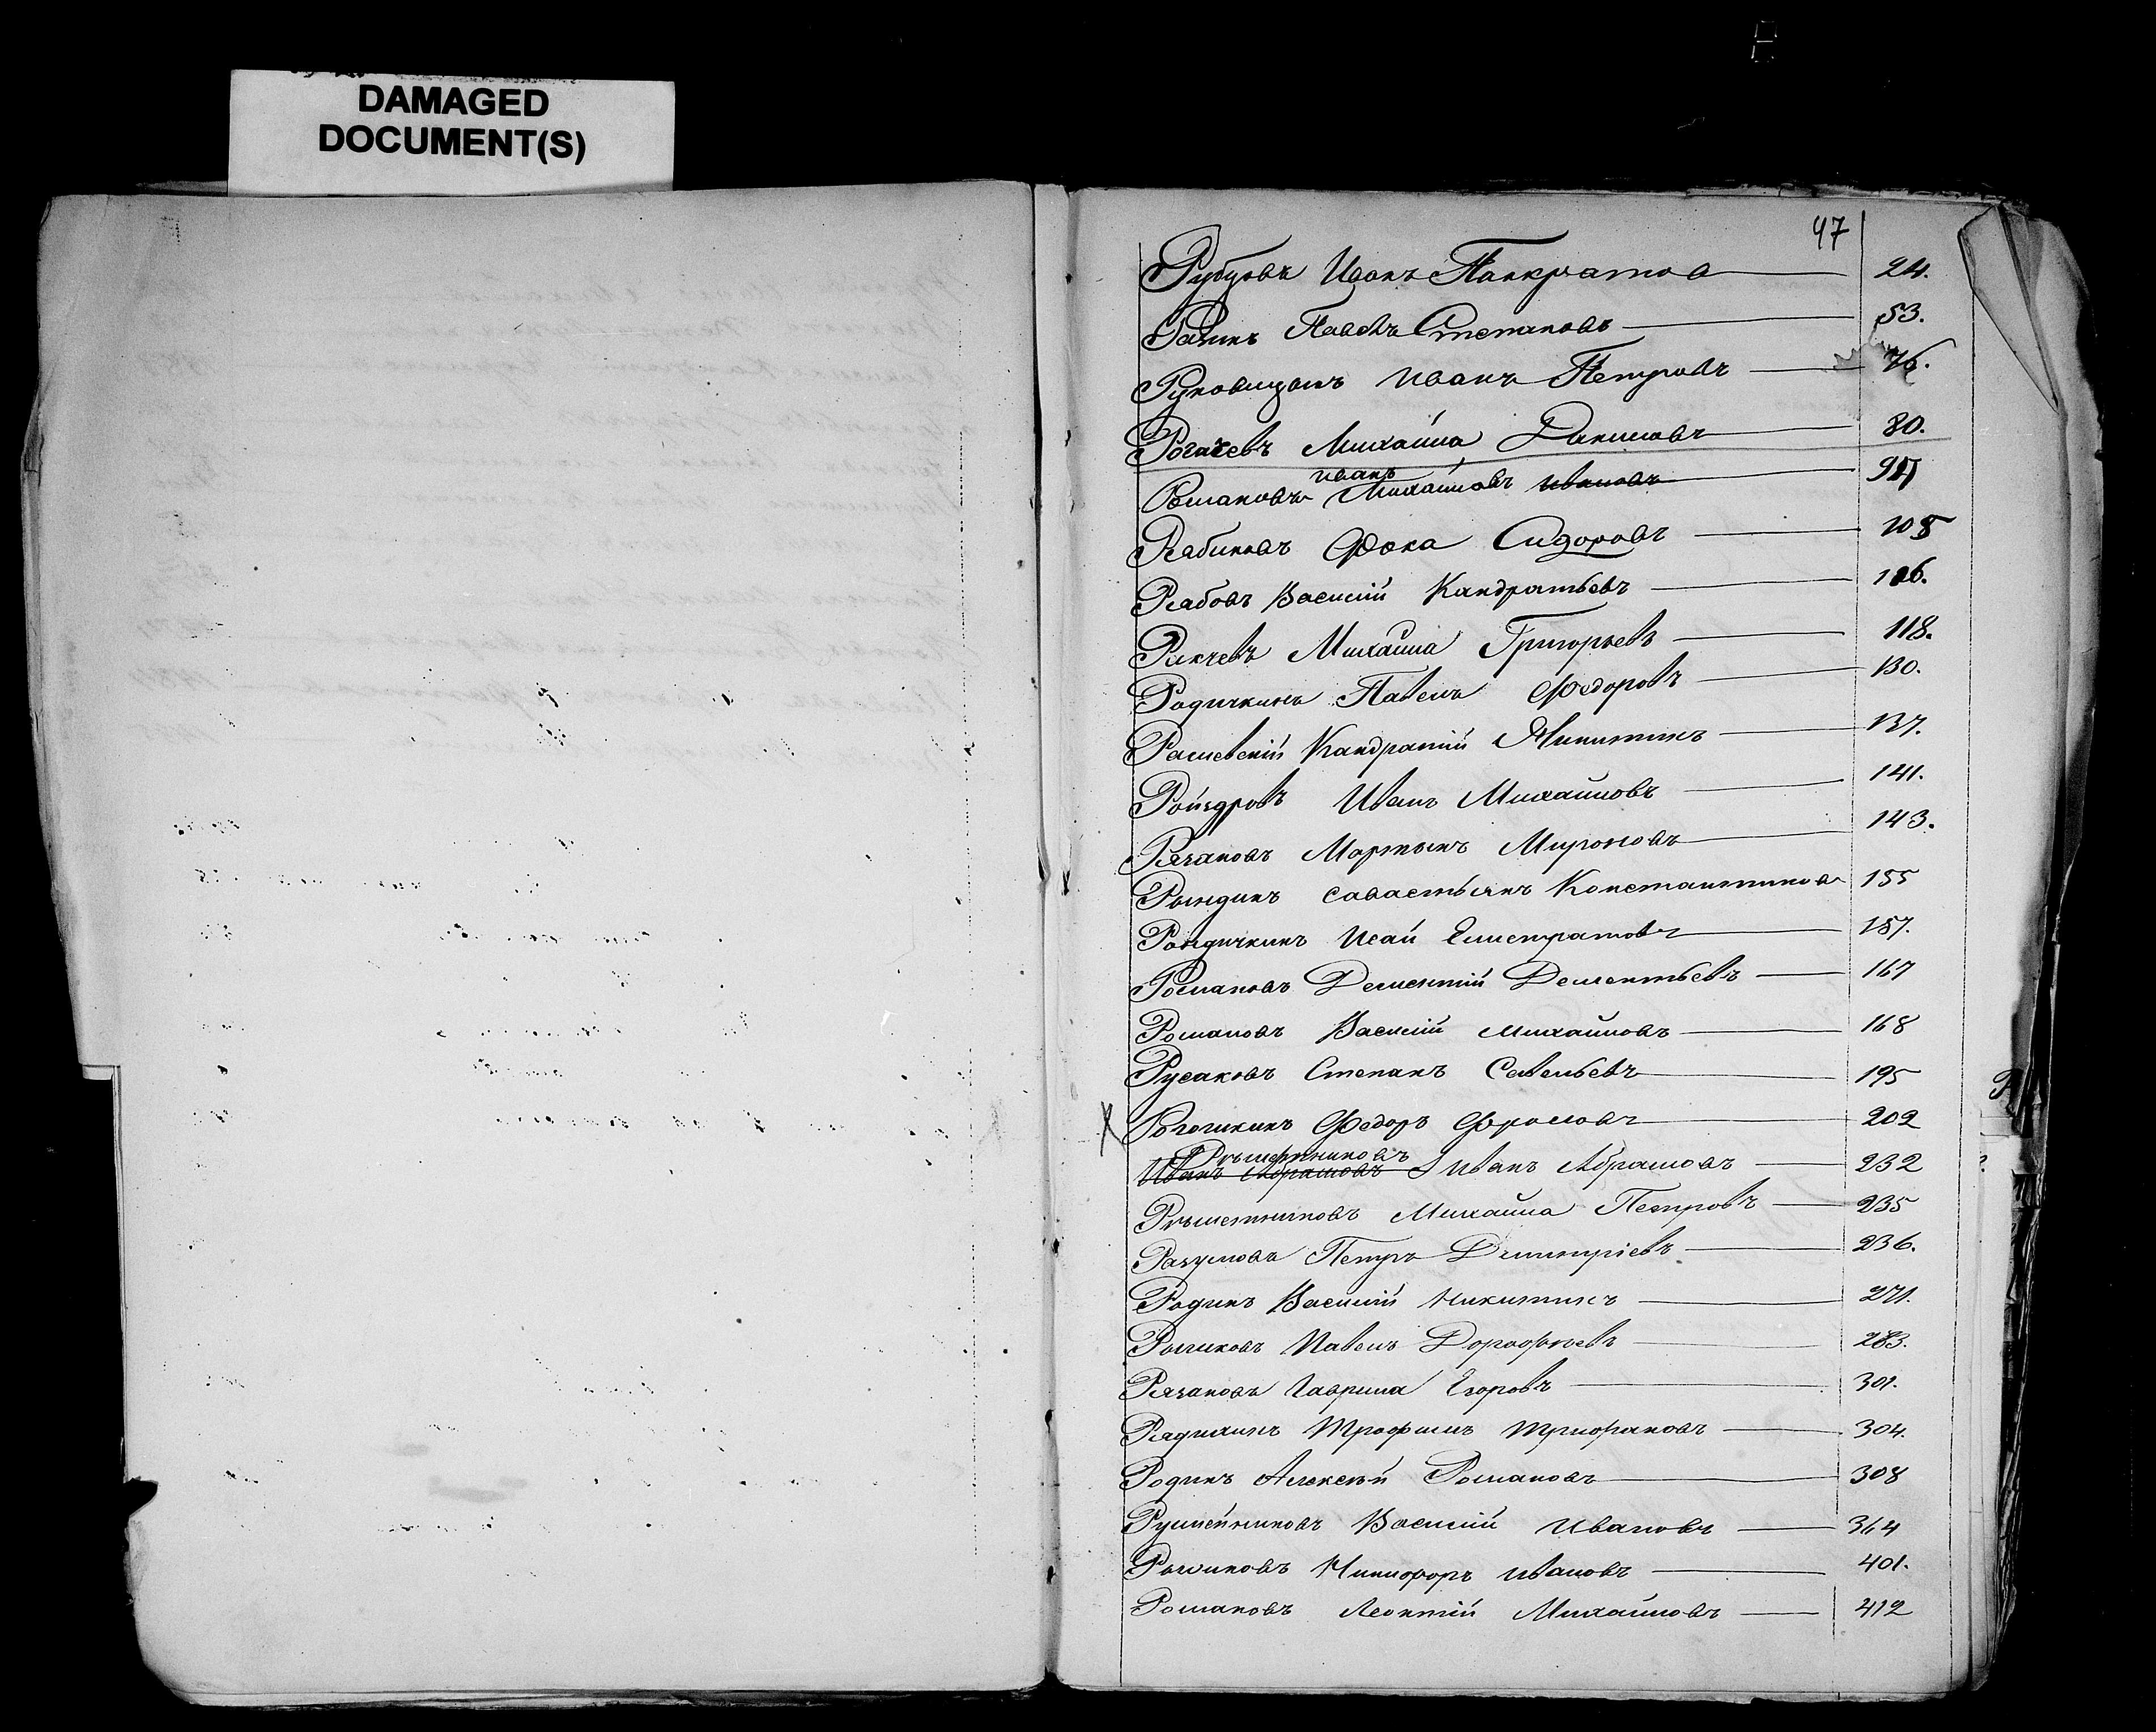 DAMAGED
DOCUMENT(S)
47
Рубцовъ Иванъ Панкратов 24.
Павелъ Степановъ 53.
Руковицынъ Иванъ Петровъ 76.
Рогачевъ Михаила Даниловъ 80.
Иванъ
Романовъ Михайловъ Ивановъ
Рабиковъ Фока Сидоровъ 105
Рабовъ Василій Кандратьевъ 106.
Михаила Григорьевъ 118.
Родичкинъ Павелъ Федоровъ 130.
Рашевскій Кандратій Никитинъ 137.
Ройздровъ Иванъ Михайловъ 141.
Рязановъ Мартынъ Мироновъ 143.
Рындинъ Савастьянъ Константинов 155
Рондичкинъ Исай Елистратовъ 157.
Романовъ Дементій Дементьевъ 167
Романовъ Василій Михайловъ 168
Русаковъ Степанъ Савельевъ 195
Х Рогошкинъ Федоръ Фроловъ 202
Рѣшетниковъ
Иванъ Абрамовъ Иванъ Абрамовъ 232
Рѣшетниковъ Михаила Петровъ 235
Разумовъ Петръ Дмитріевъ 236.
Родинъ Василій Никитинъ 271.
Рыжковъ Павелъ Дорофѣевъ 283.
Рязановъ Гаврила Егоровъ 301.
Рядихинъ Трофимъ Трифановъ 304.
Родинъ Алексѣй Романовъ 308
Румейниковъ Василій Ивановъ 364
Никифоръ Ивановъ 401.
Романовъ Леонтій Михайловъ 412
Р